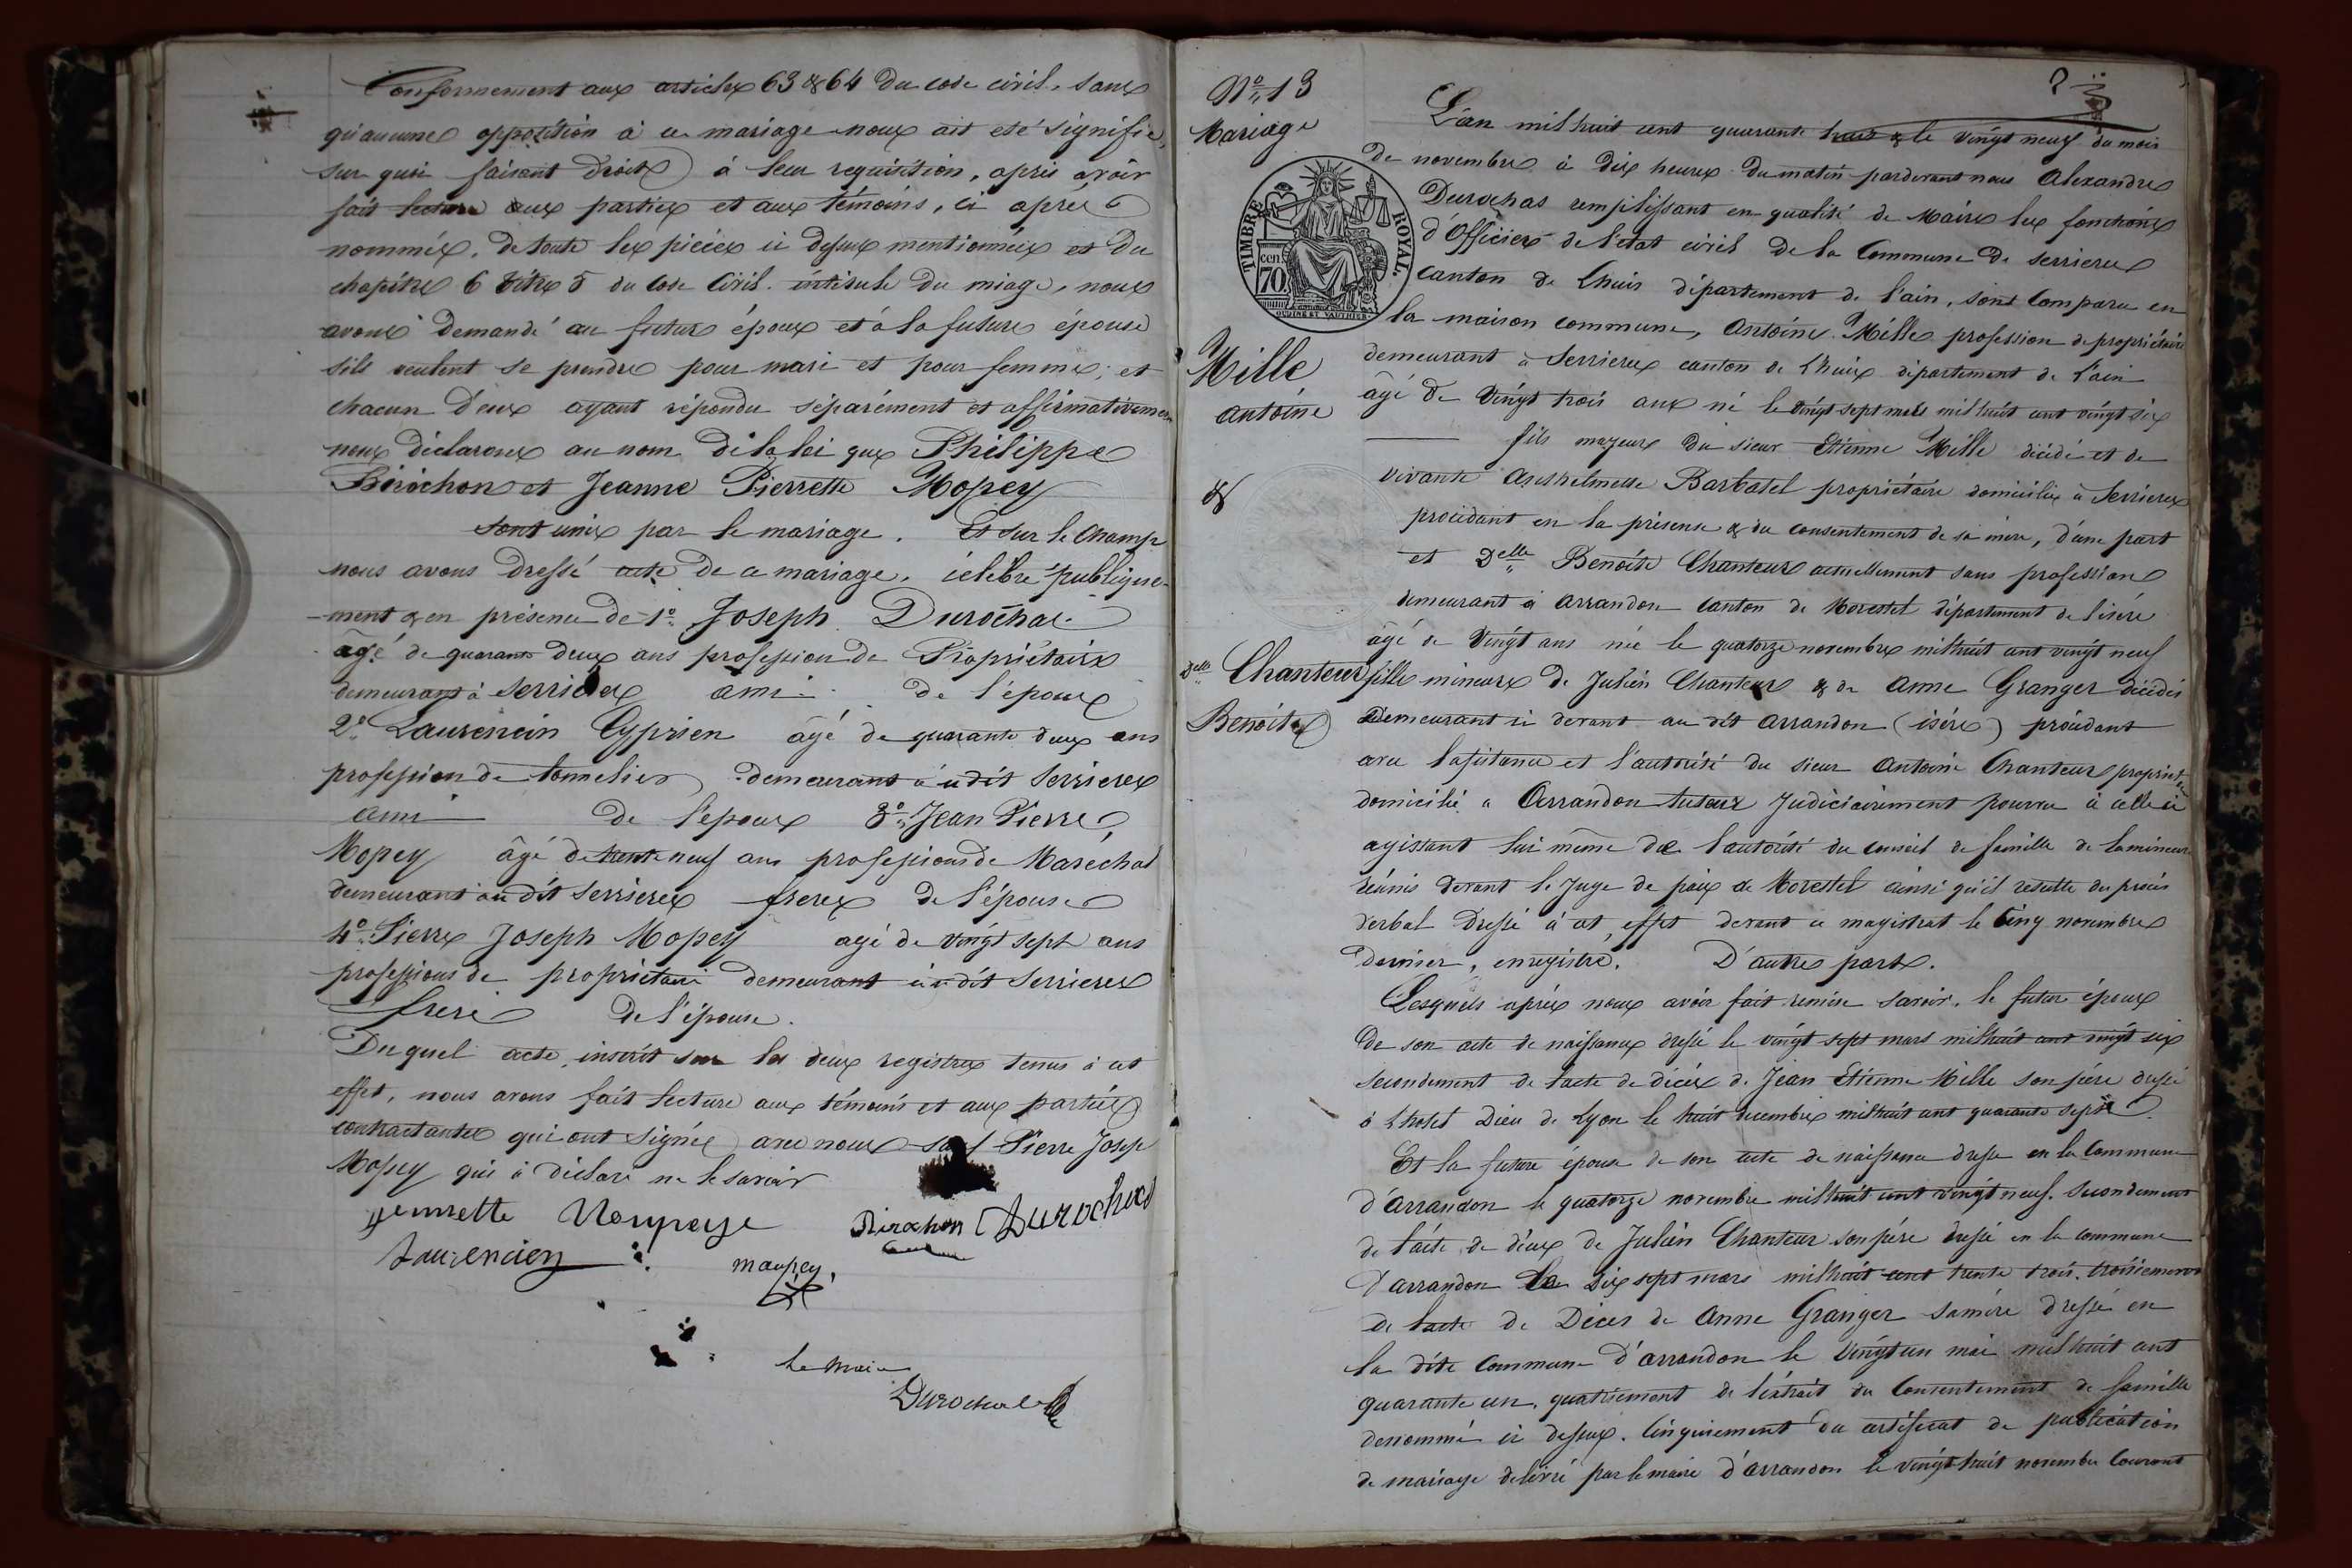 Conformement aux articles 63 & 64 du code civil, sans
qu'aucune opposition à ce mariage nous ait eté signifie,
sur quoi faisant droit à leur requisition, après avoir
fait lecture aux parties et aux témoins, ci après
nommés, de toute les pièces ci dessus mentionnées et du
chapitre 6 titre 5 du Code Civil. intitule du miage, nous
avons demandé au futur époux et à la future épouse
s'ils veulent se prendre pour mari et pour femme; et
chacun d'eux ayant répondu séparément et affirmativement
nous déclarons au nom de la loi que Philippe
Pirochon et Jeanne Pierrette Mopey
sont unis par le mariage. Et sur le champ
nous avons dressé acte de ce mariage, célébré publique-
-ment & en présence de 1º Joseph Durochat
âgé de quarante deux ans profession de Propriétaire
demeurant à Serrieres ami de l'époux
2º Laurencin Cyprien âgé de quarante deux ans
profession de tonnelier demeurant à udit Serrieres
ami de l'époux 3º Jean Pierre
Mopey âgé de trente neuf ans professions de Maréchal
demeurant au dit Serrieres freres de l'épouse
4º Pierre Joseph Mopey agé de vingt sept ans
professions de propriétaire demeurant à udit Serrieres
frere de l'épouse.
Du quel acte, inscrit sur les deux registres tenus à cet
effet, nous avons fait lecture aux témoins et aux parties
contractantes qui ont signée avec nous sauf Pierre Josep
Mopey qui à déclaré ne le savoir
Maupeye Pirochon Durochat
Laurencien maupey
Le Maire
Durochat
Nº 13
Mariage
TIMBRE ROYAL
70 cen.
OUDINÉ ET VAUTHIER
Mille
Antoine
&
Delle Chanteur
Benoite
L'an mil huit cent quarante & le vingt neuf du mois
de novembre à dix heures du matin pardevant nous Alexandre
Durochas remplissant en qualité de Maire les fonctions
d'Officier de l'etat civil de la Commune de Serrieres
canton de Lhuis département de l'ain, sont Comparu en
la maison commune, Antoine Mille profession de propriétaire
demeurant à Serrieres canton de Lhuis département de l'ain
âgé de Vingt trois ans né le vingt sept mars mil huit cent vingt six
fils majeur du sieur Etienne Mille décédé et de
vivante Barbatel propriétaire domiciliée à Serrieres
procédant en la présence & du consentement de sa mère, d'une part
et Delle Benoite Chanteur actuellement sans profession
demeurant à Arrandon Canton de Morestel département de l'isère
âgé de Vingt ans née le quatorze novembre mil huit cent vingt neuf
fille mineure de Julien Chanteur & de Anne Granger décédés
Demeurant ci devant au dit Arrandon (isère) procédant
avec l'assistance et l'autorité du sieur Antoine Chanteur propriétaire
domicilié a Arrandon tuteur Judiciairement pourvu à celle ci
agissant lui même de l'autorité du conseil de famille de la mineure
réunis devant le Juge de paix de Morestel ainsi qu'il resulte du procès
verbal Dressé à cet effet devant ce magistrat le Cinq novembre
dernier, enregistré. D'autre part.
Lesquels après nous avoir fait remise savoir, le futur époux
De son acte de naissance dressé le vingt sept mars mil huit cent vingt six
secondement de l'acte de décès de Jean Etienne Mille son père dressé
à Lhotel Dieu de Lyon le huit decembre mil huit cent quarante sept
Et la future épouse de son acte de naissance dressé en la Commune
d'Arrandon le quatorze novembre mil huit cent vingt neuf. Secondement
de l'acte de décès de Julien Chanteur son père dressé en la commune
d'arrandon le Dix sept mars mil huit cent trente trois. troisiement
de l'acte de Décès de Anne Granger sa mère dressé en
la dite Commune d'arrandon le Vingt un mai mil huit cent
quarante un, quatriement de l'extrait du Consentement de famille
denommé ci dessus. Cinquiement du certificat de publication
de mariage delivré par le maire d'Arrandon le vingt huit novembre Courant